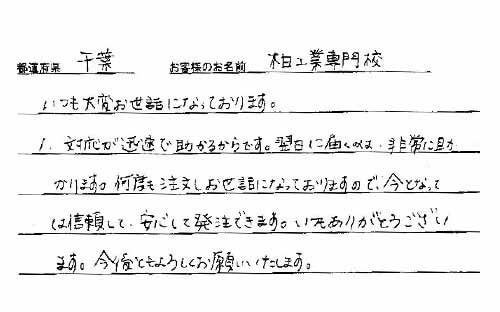 都道府県 千葉 お客様のお名前 柏工業専門校
いつも大変お世話になっております。
1. 対応が迅速で助かるからです。翌日に届くのは、非常に助
かります。何度も注文しお世話になっておりますので、今となって
は信頼して、安心して発注できます。いつもありがとうござい
ます。今後ともよろしくお願いいたします。